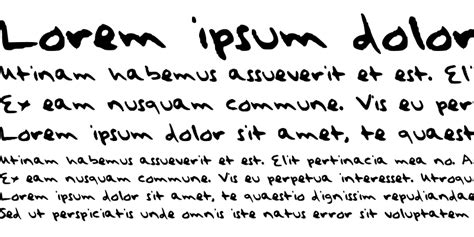 Lorem ipsum dolor
Utinam habemus assueverit et est. Eli
Ex eam nusquam commune. Vis eu per
Lorem ipsum dolor sit amet, te quaest
Utinam habemus assueverit et est. Elit pertinacia mea no. A
Ex eam nusquam commune. Vis eu perpetua interesset. Utroqu
Lorem ipsum dolor sit amet, te quaestio dignissim repudianda
Sed ut perspiciatis unde omnis iste natus error sit voluptatem